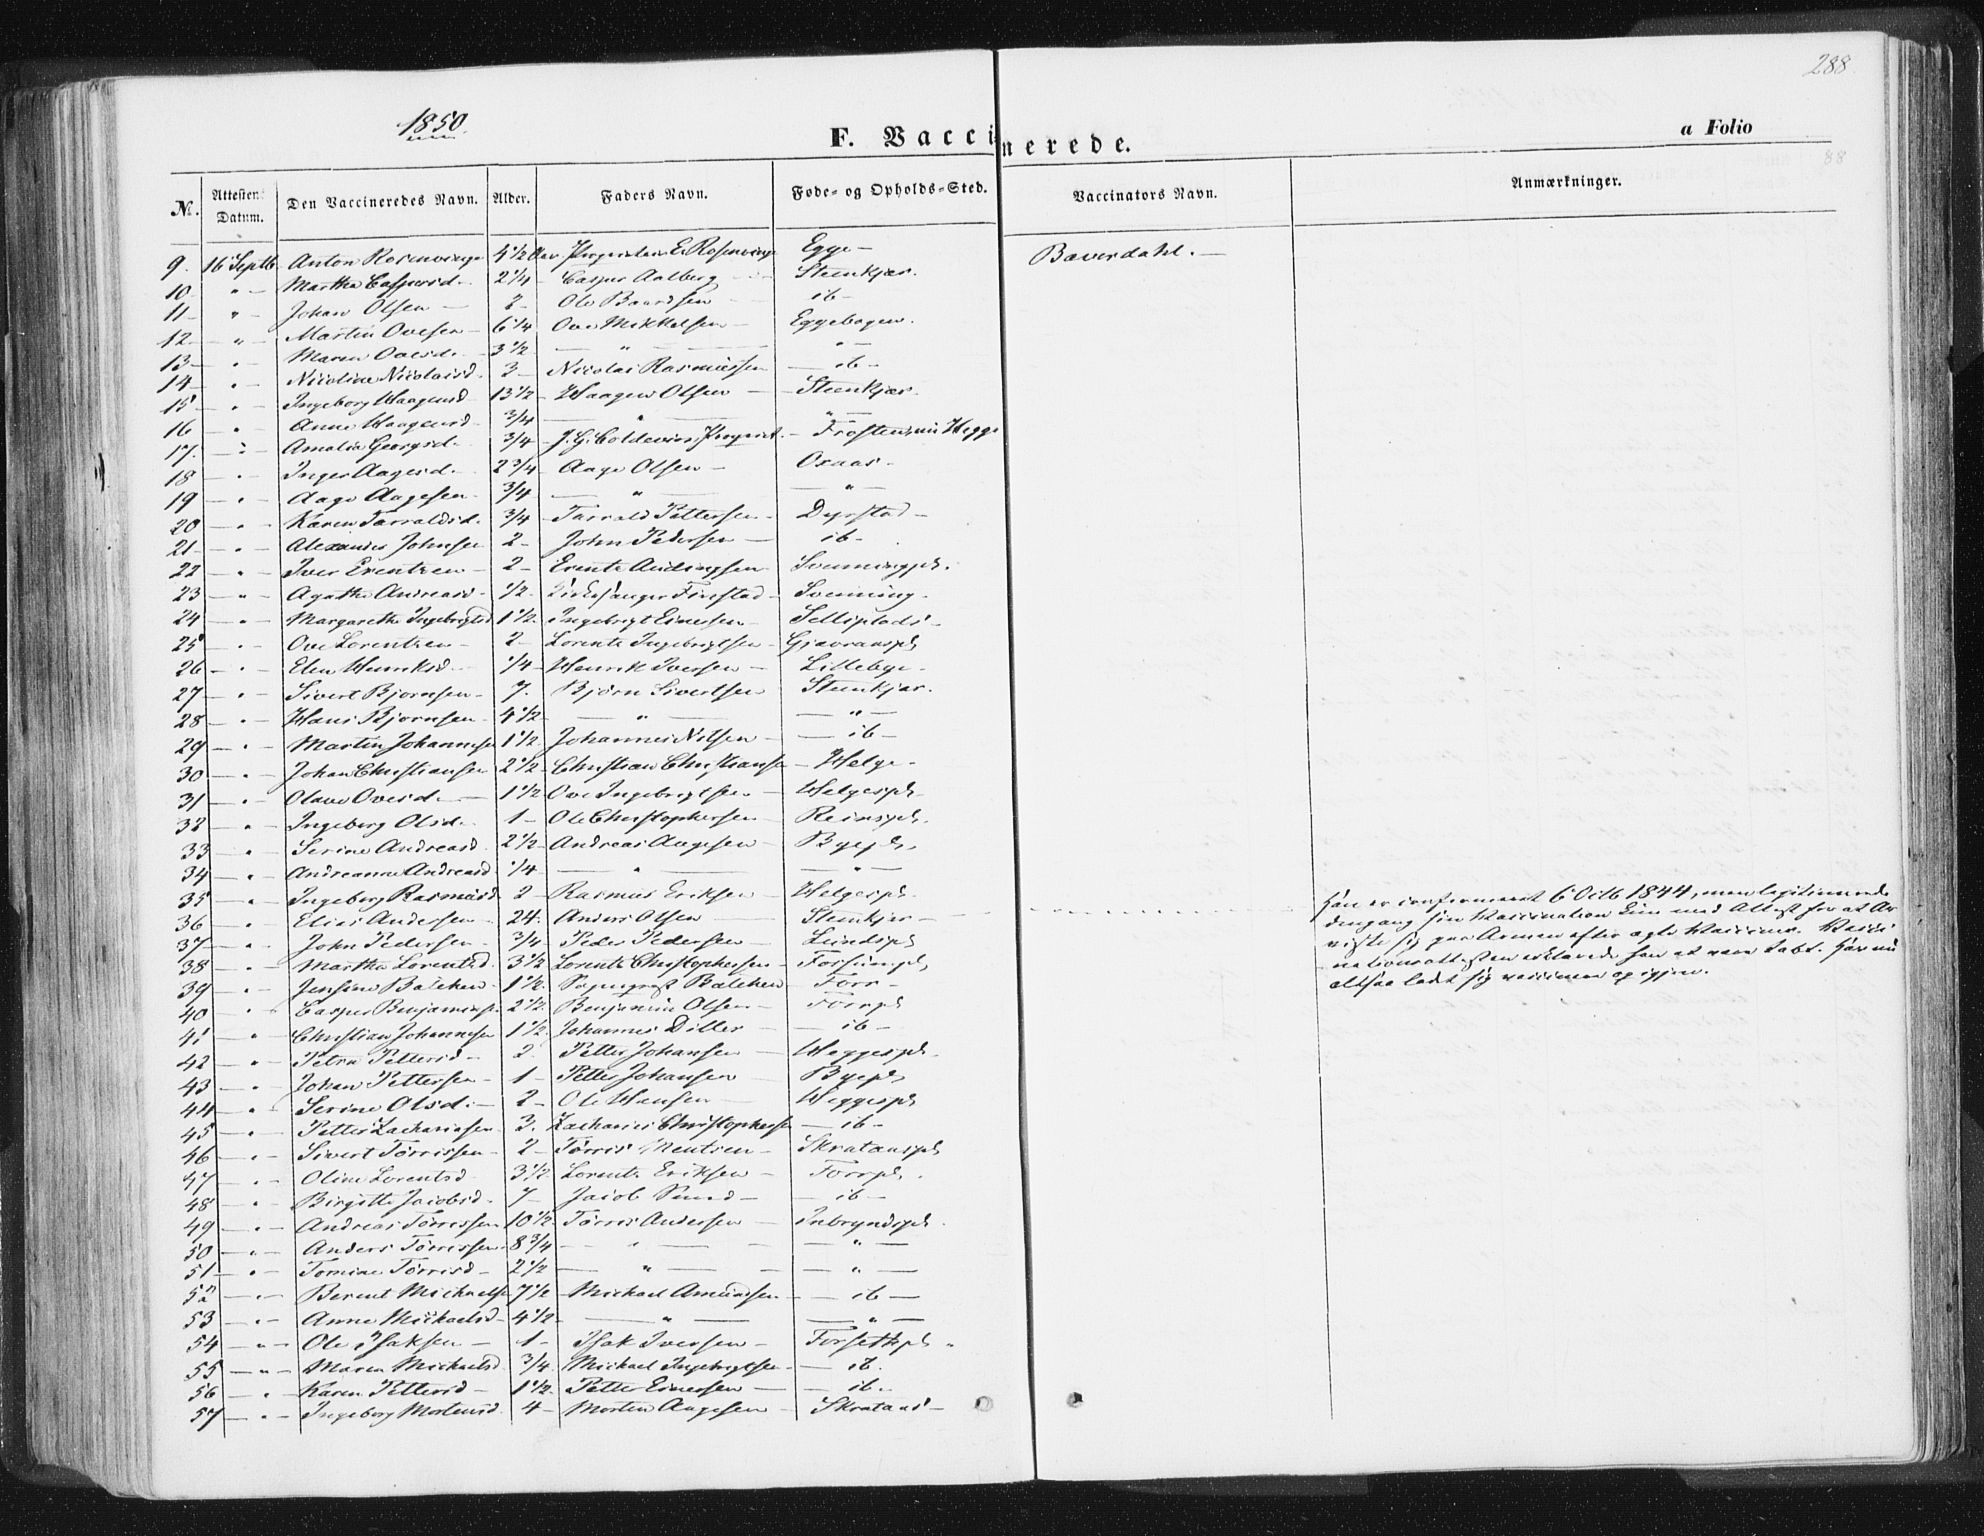 288
1850.
F. Vaccinerede.
a Folio
88
No. Attestens Datum. Den Vaccineredes Navn. Alder. Faders Navn. Føde- og Opholds-Sted. Vaccinators Navn. Anmærkninger.
9. 16 Septb. Anton Rosenvinge 4 1/2 E. Rosenvinge Egge - Baverdahl. -
10 " - Martha Caspersd. 2 1/4 Casper Aalberg Steenkjær.
11 " - Johan Olsen - 2 - Ole Baardsen ib -
12 " - Martin Ovesen - 6 1/4 Ove Mikkelsen - Eggebogen.
13 - " - Maren Ovesd. - 3 1/2 - " - " -
14 - " - Nicoline Nicolaisd. 3 - Nicolai Rasmussen - ib -
15 - " - Ingeborg Waagensd. 13 1/2 - Waagen Olsen - Steenkjær.
16 - " - Anne Waagensd. 3/4 - " - " -
17. - " - Amalia Georgsd. 3/4 - J. G. Coldevin, - Frosten, nu Hegge
18 - " - Inger Aagesd. 2 3/4 - Aage Olsen - Oxaas -
19 - " - Aage Aagesen - 3/4 - " - " -
20 - " - Karen Tarraldsd. 3/4 - Tarrald Pettersen - Dyrstad -
21 - " - Alexander Johnsen 2 - John Pedersen - ib -
22 - " - Iver Erentzen - 2 - Erentz Andsen - Svenningpl.
23 - " - Agatha Andreasd. - 1/2 - Kirkesanger Finstad - Svenning -
24 - " - Margaretha Ingebrigtsd 1 1/2 - Ingebrigt Einersen - Selliplads -
25 - " - Ove Lorentzen - 2 - Lorentz Ingebrigtsen - Gjævranspl
26 - " - Elen Henriksd. 1/4 - Henrik Iversen - Lillebye -
27 - " - Sivert Bjørnsen - 7. - Bjørn Sivertsen Steenkjær.
28 - " - Hans Bjørnsen - 4 1/2 - " - - " -
29 - " - Martin Johannesen 1 1/2 Johannes Nilsen - - ib -
30 - " - Johan Christiansen 2 1/2 - Christian Christiansen - Helge -
31 - " - Olava Ovesd. - 1 1/2 Ove Ingebrigtsen - Helgespl.
32 - " - Ingeborg Olsd. 1 - Ole Christophersen - Reinspl.
33 - " - Serine Andreasd. 2 1/2 - Andreas Aagesen - Byepl.
34 - " - Andreanna Andreasd. 1/4 - " - - " -
35 - " - Ingeborg Rasmusd. 2 - Rasmus Eriksen - Helgespl. Han er confirmeret 6 Octb 1844, men legitimerede
36 - " - Elias Andersen 24. Anders Olsen - Steenkjær - dengang sin Vaccination Attest for at
37 - " - John Pedersen - 3/4 - Peder Pedersen - Lundspl. sig paa Armen efter ægte Vacciner. Vacci
38 - " - Martha Lorentsd. 3 1/2 Lorentz Christophersen - nationsattesten erklærede han at være tabt. Har nu
39 - " - Jensine Balchen - 1 1/2 - Sogneprest Balchen Forr - altsaa ladt sig vaccinere op igjen.
40 - " - Casper Benjaminsen 2 1/2. Benjamin Olsen - Forrpl.
41 - " - Christian Johannesen 1 1/2. Johannes Diller - - ib -
42 - " - Petra Pettersd. - 2. Petter Johansen - Heggespl.
43 - " - Johan Pettersen - 1 - Petter Johansen - Byepl.
44 - " - Serine Olsd. - 2 - Ole Hansen - Heggespl.
45 - " - Petter Zachariasen - 3. Zacharias Christophersen - ib -
46 - " - Sivert Tørrissen - 2 - Tørris Mentzen - Skratanspl.
47 - " - Oline Lorentsd. 3 1/2. Lorentz Eriksen - Forrpl.
48 - " - Birgitta Jacobsd. - 7 - Jacob Sund - - ib -
49 - " - Andreas Tørrissen 10 1/2 Tørris Andersen - Inbryndspl.
50 - " - Anders Tørrissen 8 3/4 - " - - " -
51 - " - Tomine Tørrisd. - 2 1/2 - " - - " -
52 - " - Berent Michaelsen 7 1/2 - Michael Amundsen - - ib -
53 - " - Anne Michaelsd. - 4 1/2 - " - - " -
54 - " - Ole Isaksen - 1 - Isak Iversen - Forsethpl.
55 - " - Maren Michaelsd. 3/4. Michael Ingebrigtsen - - ib.
56 - " - Karen Pettersd. - 1 1/2. Petter Einersen - - ib -
57 - " - Ingeborg Mortensd. 4 - Morten Aagesen - Skratans -